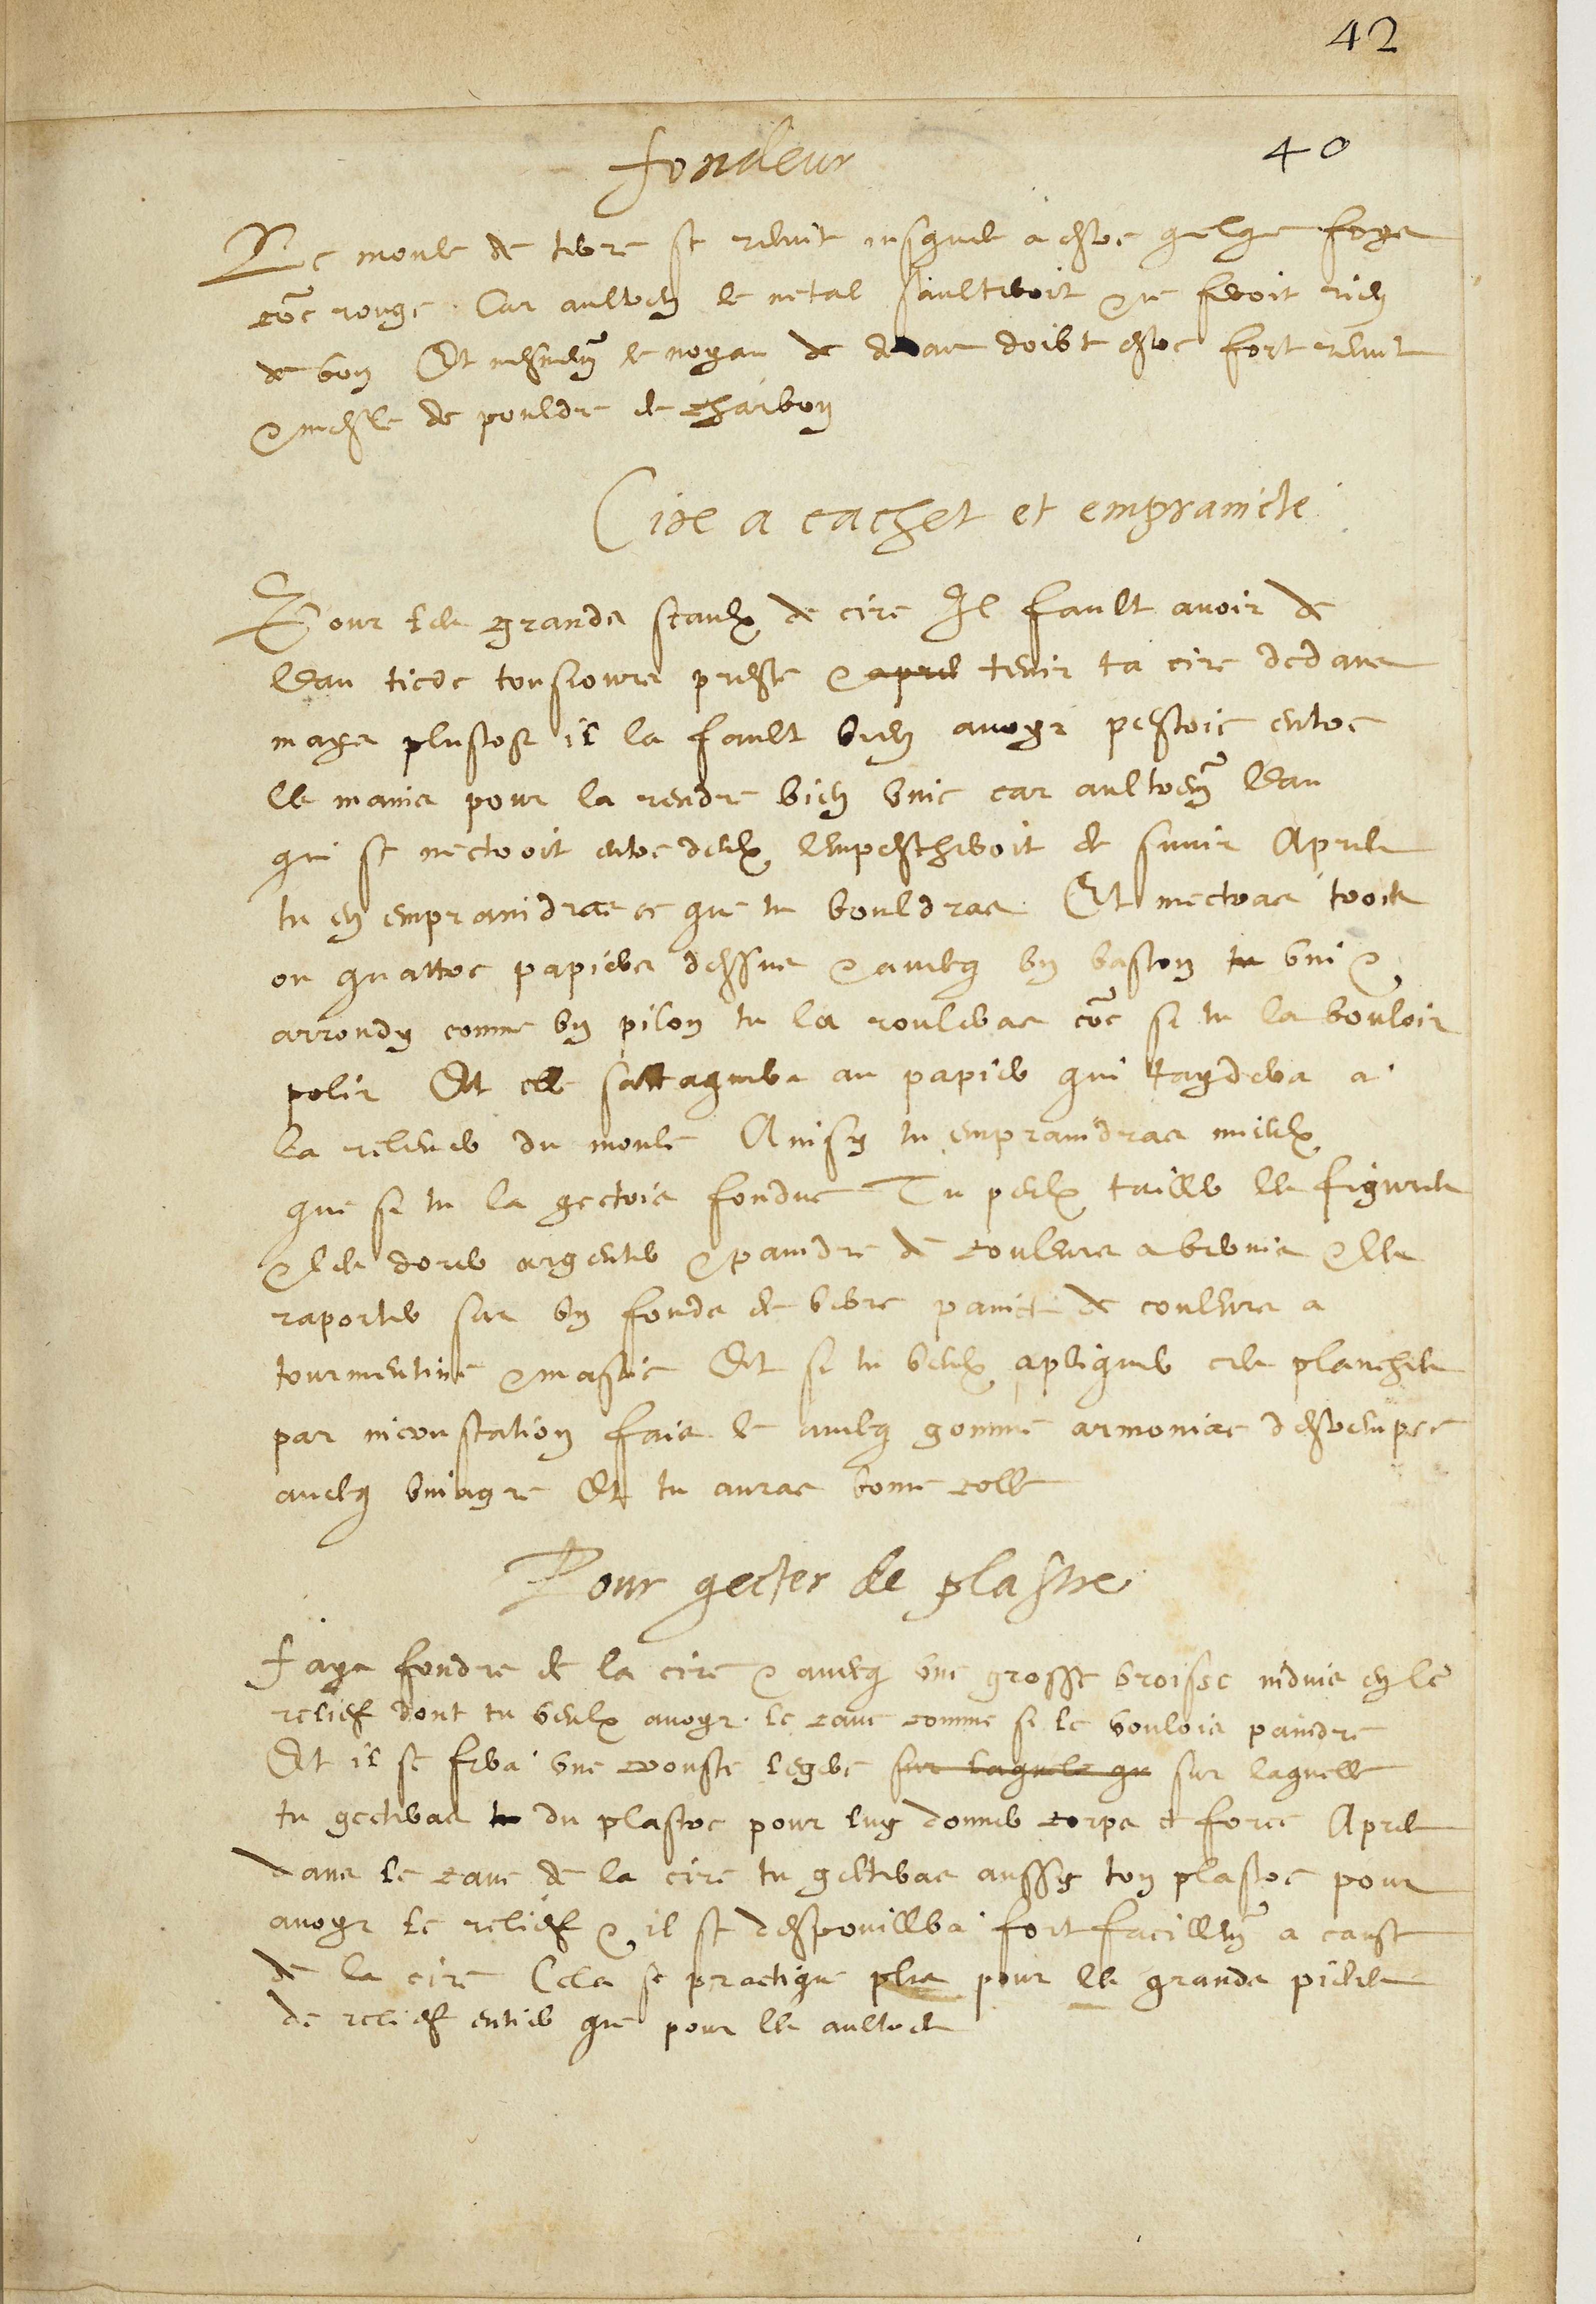 42
40
fondeur
Le moule de terre se recuit jusques a estre quelque foys
co{mm}e rouge. Car aultrem{ent} le metal saulteroit & ne feroit rien
de bon Et mesmem{ent} le noyau de dedans doibt estre fort recuit
& mesle de pouldre de charbon
Cire a cachet et empraincte
Pour les grands seaulx de cire Il fault avoir de
leau tiede tousjours preste & apres tenir ta cire dedans
mays plustost il la fault bien avoyr pestrie entre
les mains pour la rendre bien unie car aultrem{ent} leau
qui se mectroit entre deulx lempescheroit de sunir Apres
tu en empraindras ce que tu vouldras Et mectras trois
ou quattre papiers dessus & aulcq un baston tu uni &
arrondy comme un pilon tu la rouleras co{mm}e si tu la vouloir
polir Et elle sattaquera au papier qui taydera a
la relever du moule Ainsy tu empraindras mieulx
que si tu la gectois fondue Tu peulx tailler les figures
& les dorer argenter & paindre de couleurs a vernis & les
raporter sur un fonds de verre painct de couleurs a
tourmentine & mastic Et si tu veulx apliquer ces planches
par incrustation fais le avecq gomme armoniac destrempee
avecq vinaigre Et tu auras bonne colle
Pour gecter de plastre
Fays fondre de la cire & avecq une grosse broisse induis en le
relief dont tu veulx avoyr le cave comme si le voulois paindre
Et il se fera une crouste legere sur laquele qu sur laquelle
tu gecteras tu du plastre pour luy donner corps et force Apres
dans le cave de la cire tu gecteras aussy ton plastre pour
avoyr le relief & il se despouillera fort facillem{ent} a cause
de la cire Cela se practique plus pour les grands pieces
de relief entier que pour les aultres